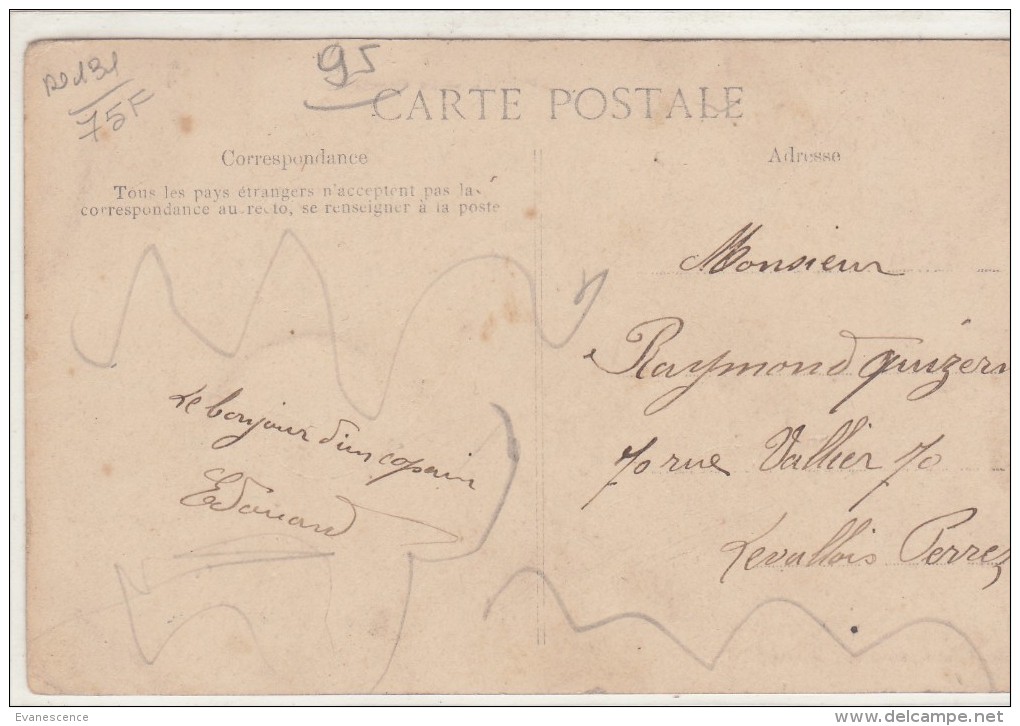 95
75F
CARTE POSTALE
Correspondance
Tous les pays étrangers n'acceptent pas la
correspondance au recto, se renseigner à la poste
Le bonjour d'un copain
Edouard
Adresse
Monsieur
Raymond
70 rue Vallier 70
Levallois Perret
Evanescence
delcampe.net